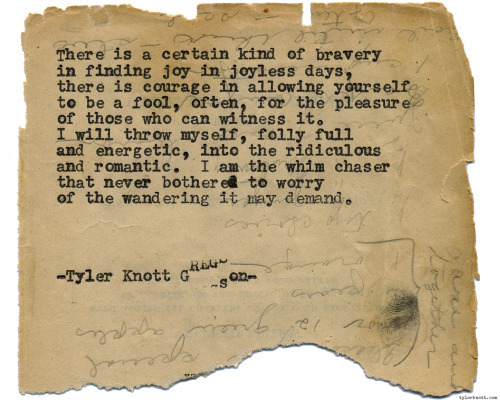 There is a certain kind of bravery
in finding joy in joyless days,
there is courage in allowing yourself
to be a fool, often, for the pleasure
of those who can witness it.
I will throw myself, folly full
and energetic, into the ridiculous
and romantic. I am the whim chaser
that never bothered to worry
of the wandering it may demand.
-Tyler Knott Gregson-
together
special
12 green apples
orange
tylerknott.com